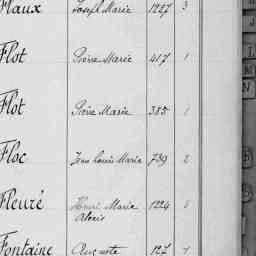 Flaux Joseph Marie 1227 3
Flot Pierre Marie 417 1
Flot Pierre Marie 385 1
Floc Jean Louis Marie 739 2
Fleuré Henri Marie 1224 3
Alexis
Fontaine Auguste 127 1